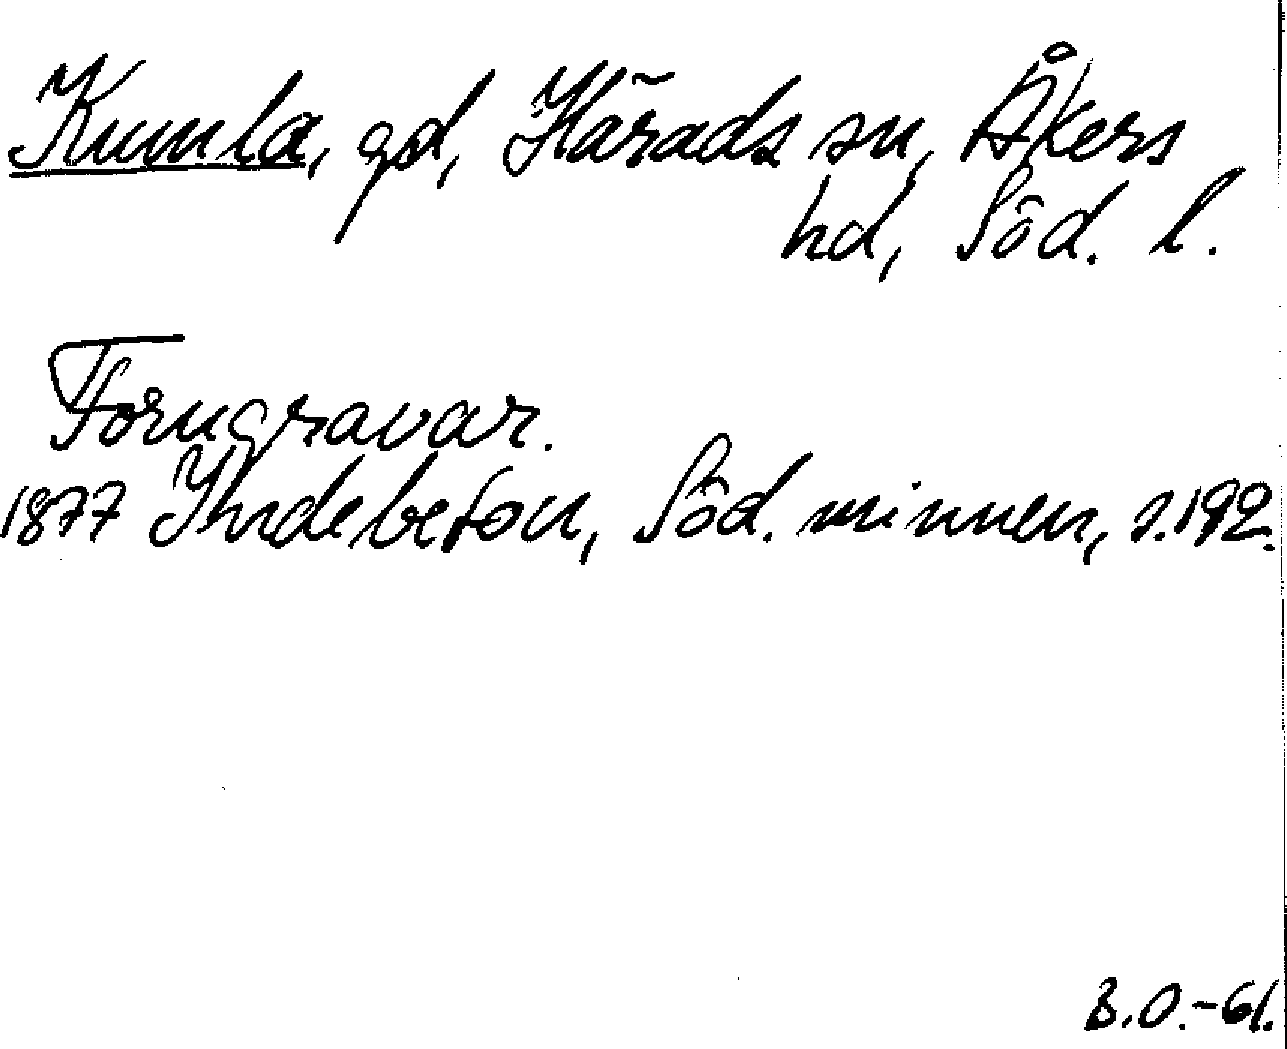 Kumla, gd, Härads sn, Åkers
hd, Söd. l.
Forngravar.
1877 Strdebeton, Söd. minnen, s. 192.
B.O.-61.